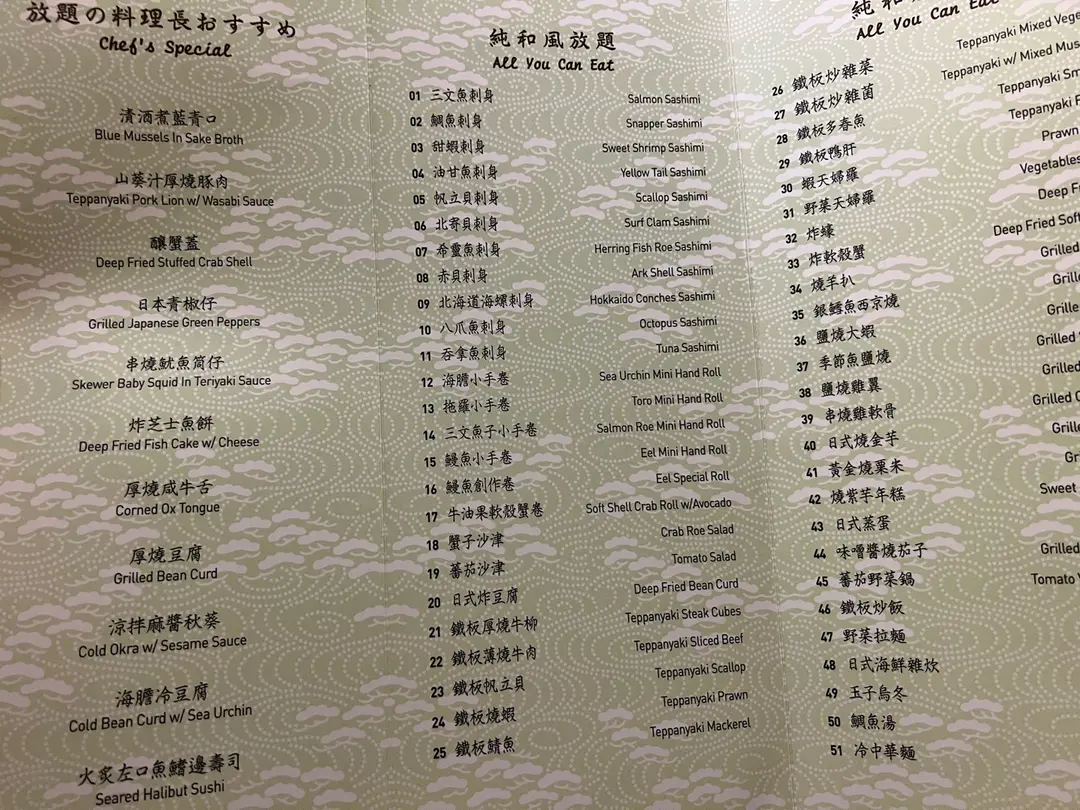 放題の料理長おすすめ
Chef's Special
清酒煮藍青口
Blue Mussels In Sake Broth
山葵汁厚燒豚肉
Teppanyaki Pork Lion w/ Wasabi Sauce
釀蟹蓋
Deep Fried Stuffed Crab Shell
日本青椒仔
Grilled Japanese Green Peppers
串燒魷魚筒仔
Skewer Baby Squid In Teriyaki Sauce
炸芝士魚餅
Deep Fried Fish Cake w/ Cheese
厚燒咸牛舌
Corned Ox Tongue
厚燒豆腐
Grilled Bean Curd
涼拌麻醬秋葵
Cold Okra w/ Sesame Sauce
海膽冷豆腐
Cold Bean Curd w/ Sea Urchin
火炙左口魚鰭邊壽司
Seared Halibut Sushi
純和風放題
All You Can Eat
01 三文魚刺身 Salmon Sashimi
02 鯛魚刺身 Snapper Sashimi
03 甜蝦刺身 Sweet Shrimp Sashimi
04 油甘魚刺身 Yellow Tail Sashimi
05 帆立貝刺身 Scallop Sashimi
06 北寄貝刺身 Surf Clam Sashimi
07 希靈魚刺身 Herring Fish Roe Sashimi
08 赤貝刺身 Ark Shell Sashimi
09 北海道海螺刺身 Hokkaido Conches Sashimi
10 八爪魚刺身 Octopus Sashimi
11 吞拿魚刺身 Tuna Sashimi
12 海膽小手卷 Sea Urchin Mini Hand Roll
13 拖羅小手卷 Toro Mini Hand Roll
14 三文魚子小手卷 Salmon Roe Mini Hand Roll
15 鰻魚小手卷 Eel Mini Hand Roll
16 鰻魚創作卷 Eel Special Roll
17 牛油果軟殼蟹卷 Soft Shell Crab Roll w/Avocado
18 蟹子沙津 Crab Roe Salad
19 蕃茄沙津 Tomato Salad
20 日式炸豆腐 Deep Fried Bean Curd
21 鐵板厚燒牛柳 Teppanyaki Steak Cubes
22 鐵板薄燒牛肉 Teppanyaki Sliced Beef
23 鐵板帆立貝 Teppanyaki Scallop
24 鐵板燒蝦 Teppanyaki Prawn
25 鐵板鯖魚 Teppanyaki Mackerel
純和
All You Can Eat
26 鐵板炒雜菜 Teppanyaki Mixed Vege
27 鐵板炒雜菌 Teppanyaki w/ Mixed Mus
28 鐵板多春魚 Teppanyaki Sm
29 鐵板鴨肝 Teppanyaki
30 蝦天婦羅 Prawn
31 野菜天婦羅 Vegetables
32 炸蠔 Deep Fri
33 炸軟殼蟹 Deep Fried Soft
34 燒羊扒 Grilled
35 銀鱈魚西京燒 Grill
36 鹽燒大蝦 Grille
37 季節魚鹽燒 Grilled
38 鹽燒雞翼 Grilled
39 串燒雞軟骨 Grilled
40 日式燒金芋 Grill
41 黃金燒粟米 Gr
42 燒紫芋年糕 Sweet
43 日式蒸蛋
44 味噌醬燒茄子 Grilled
45 蕃茄野菜鍋 Tomato
46 鐵板炒飯
47 野菜拉麵
48 日式海鮮雜炊
49 玉子烏冬
50 鯛魚湯
51 冷中華麵